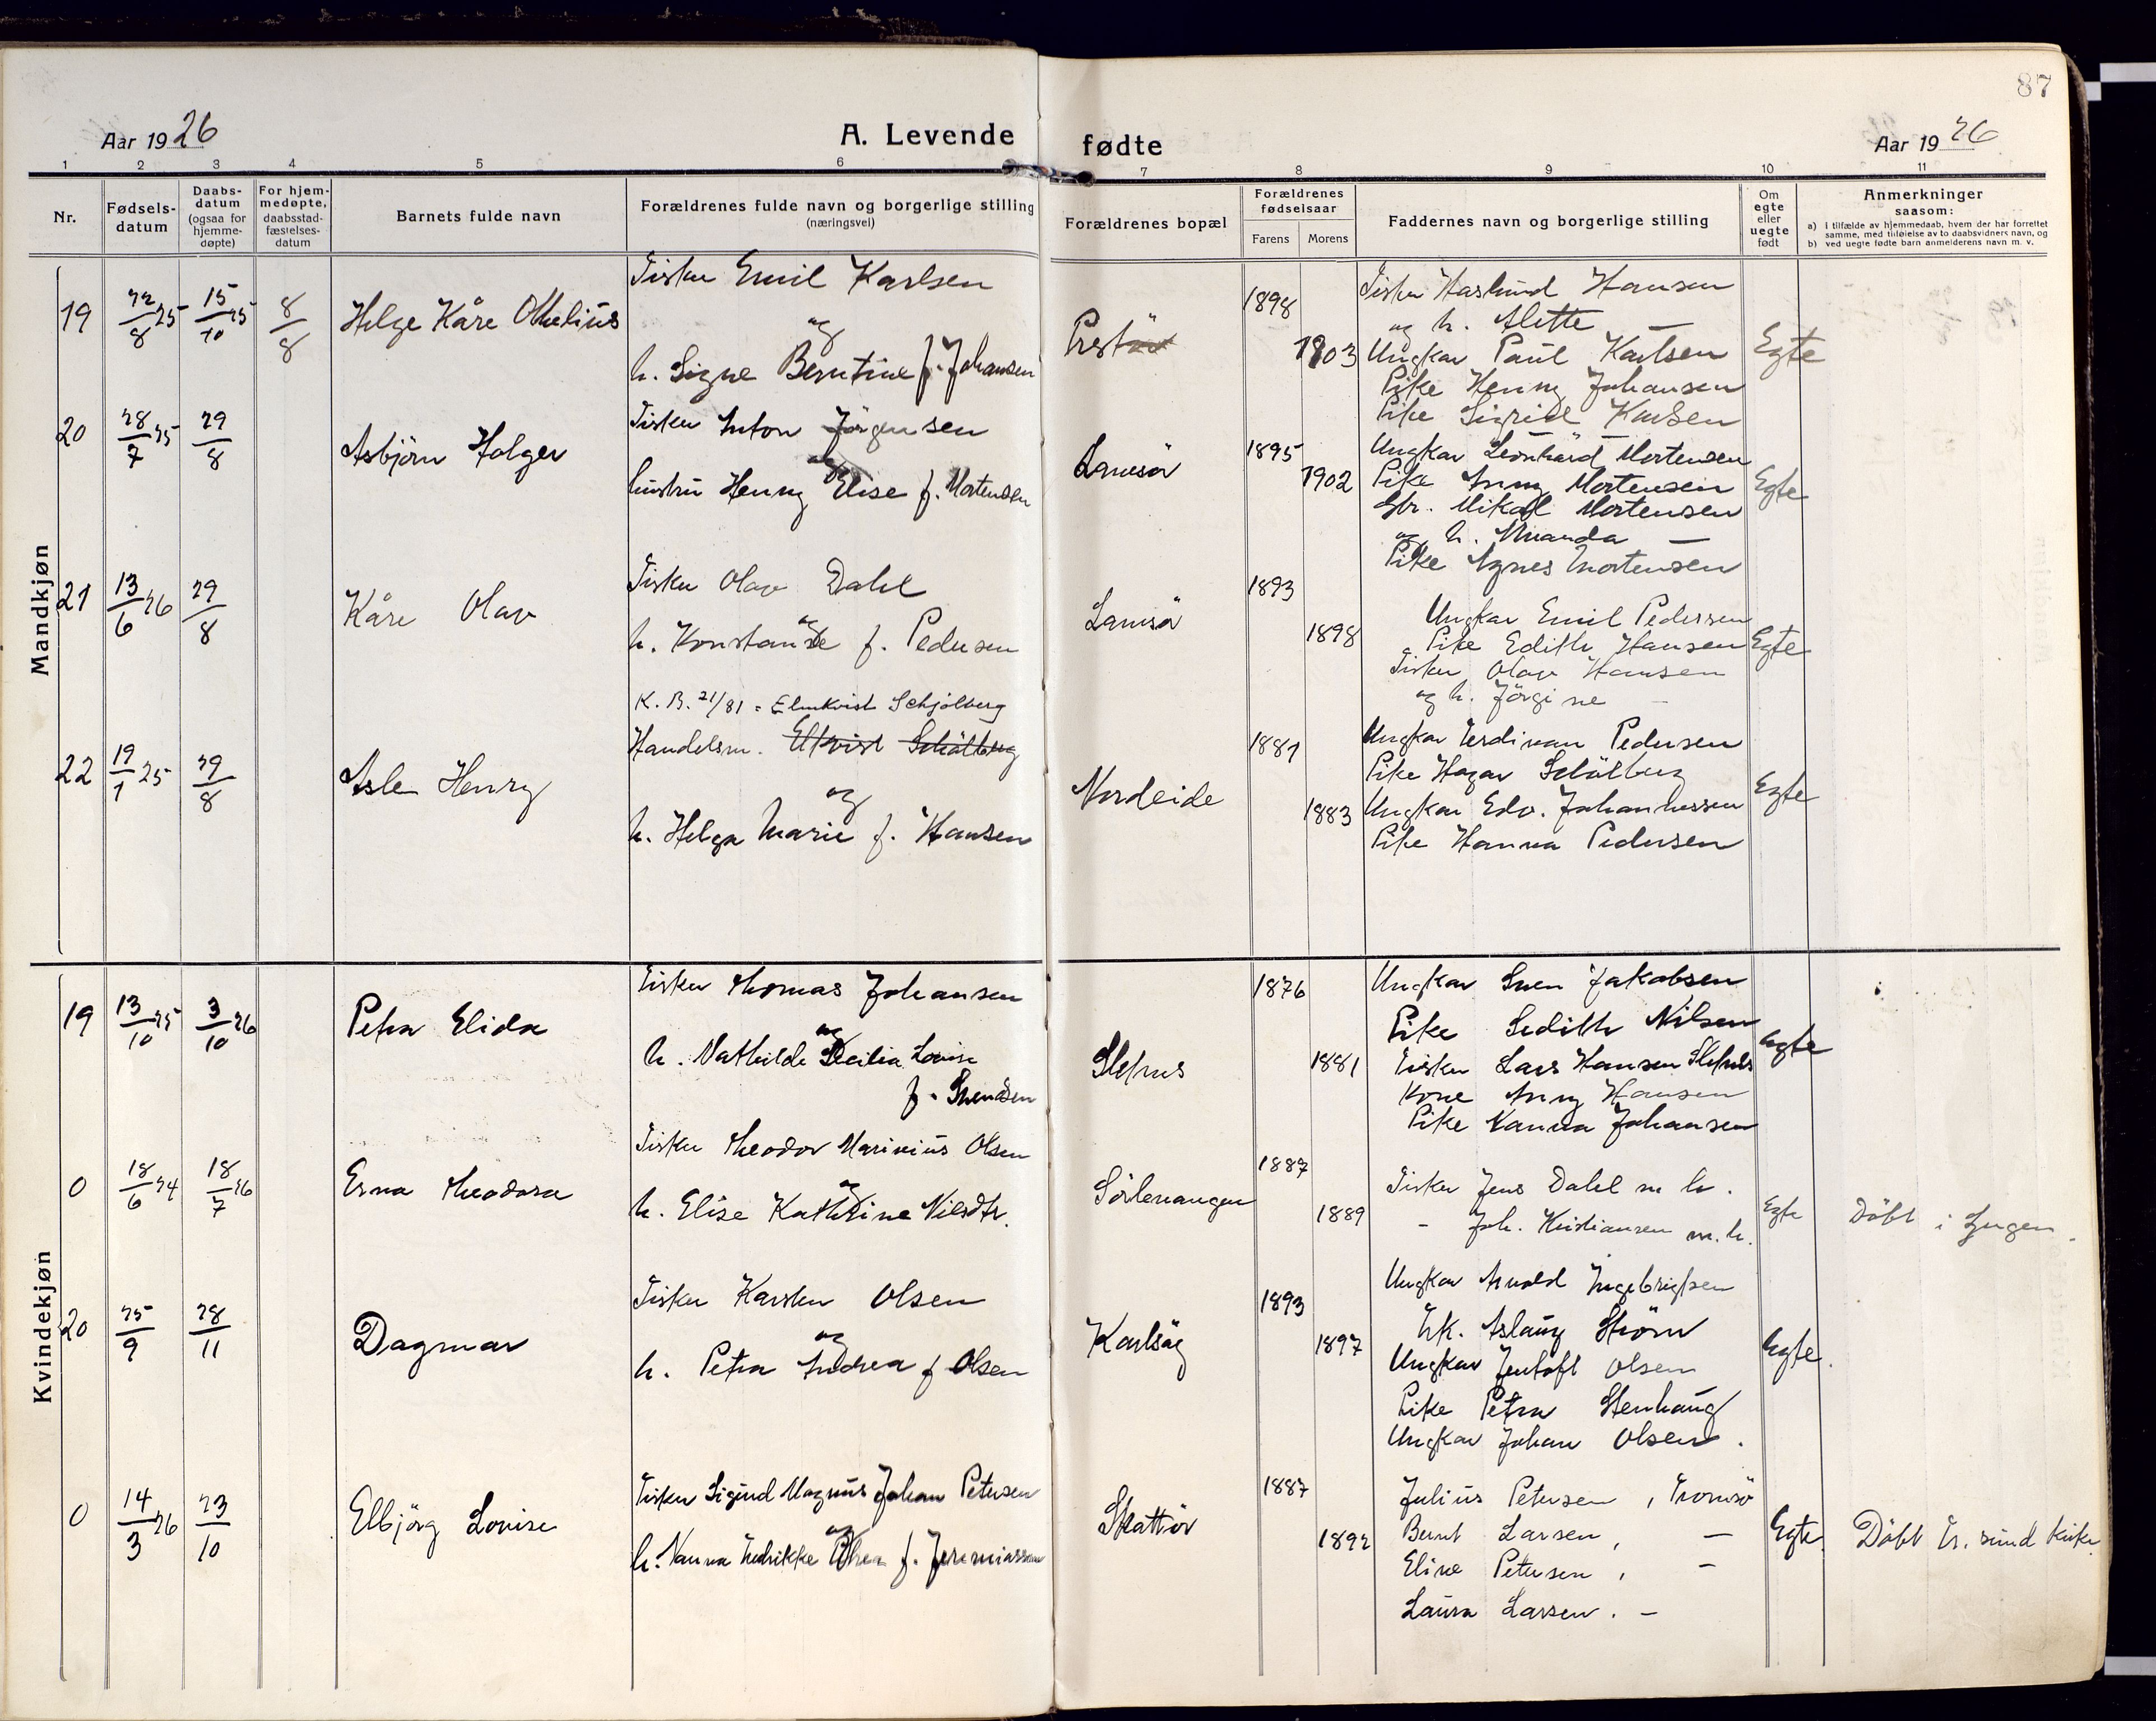 87
Aar 1926
A. Levende
fødte
Aar 1926
1 2 3 4 5 6 7 8 9 10 11
Nr.
Fødsels-
datum
Daabs-
datum
(ogsaa for
hjemme-
døpte)
For hjem-
medøpte,
daabsstad-
fæstelses-
datum
Barnets fulde navn
Forældrenes fulde navn og borgerlige stilling
(næringsvei)
Forældrenes bopæl
Forældrenes
fødselsaar
Farens Morens
Faddernes navn og borgerlige stilling
Om
egte
eller
uegte
født
Anmerkninger
saasom:
a) I tilfælde av hjemmedaab, hvem der har forrettet
samme, med tilføielse av to daabsvidners navn, og
b) ved uegte fødte barn anmelderens navn m. v.
Mandkjøn
19 22/8 25 15/10 25 8/8
Helge Kåre Othelius
Fisker Emil Karlsen
og
h. Signe Berntine f. Johansen
1898
1903
Fisker Haslund Hansen
og h. Alette —
Ungkar Paul Karlsen
Pike Henny Johansen
Pike Sigrid Karlsen
Egte
20 28/7 25 29/8
Asbjörn Holger
Fisker Anton Jörgensen
og
hustru Henny Elise f. Mortensen
Lanesör
1895
1902
Ungkar Leonhard Mortensen
Pike Anny Mortensen
Gbr. Mikal Mortensen
og h. Amanda —
Pike Agnes Mortensen
Egte
21 13/6 26 29/8
Kåre Olav
Fisker Olav Dahl
og
h. Konstanse f. Pedersen
Lanesör
1893
1898
Ungkar Emil Pedersen
Pike Edith Hansen
Fisker Olav Hansen
og h. Jörgine —
Egte
22 19/1 25 29/8
Asle Henry
K. B. 21/81 = Elmkvist Schjölberg
Handelsm. Elkvist Schölberg
og
h. Helga Marie f. Hansen
Nordeide
1881
1883
Ungkar Ferdinan Pedersen
Pike Hagar Schölberg
Ungkar Edv. Johannessen
Pike Hanna Pedersen
Egte
Kvindekjøn
19 13/10 25 3/10 26
Petra Elida
Fisker Thomas Johansen
og
h. Mathilde Cecilia Lovise
f. Svendsen
Slettnes
1876
1881
Ungkar Sven Jakobsen
Pike Sedith Nilsen
Fisker Lars Hansen Slettnes
Kone Anny Hansen
Pike Nanna Johansen
Egte
0 18/6 24 18/7 26
Erna Theodora
Fisker Theodor Marinius Olsen
og
h. Elise Kathrine Nilsdtr.
Sörlenangen
1887
1889
Fisker Jens Dahl m h.
— Joh. Kristiansen m. h.
Egte
Döbt i Lyngen.
20 25/9 28/11
Dagmar
Fisker Karsten Olsen
og
h. Petra Andrea f Olsen
Karlsöy
1893
1897
Ungkar Arnold Ingebrigtsen
Frk. Aslaug Ström
Ungkar Jentoft Olsen
Pike Petra Stenhaug
Ungkar Johan Olsen.
Egte.
0 14/3 26 23/10
Elbjörg Lovise
Fisker Sigurd Magnus Johan Petersen
og
h. Nanna Fredrikke f. Jeremiassen
Skattör
1887
1892
Julius Petersen, Tromsö
Bernt Larsen, —
Eline Petersen, —
Laura Larsen. —
Egte
Döbt Tr. sund kirke